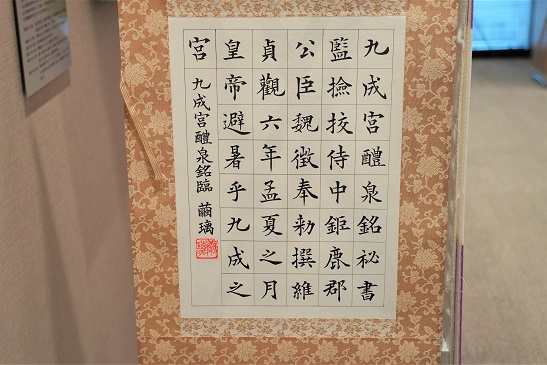 九成宮醴泉銘秘書
監撿挍侍中鉅鹿郡
公臣魏徴奉勅撰維
貞觀六年孟夏之月
皇帝避暑乎九成之
宮
九成宮醴泉銘臨 繭璃